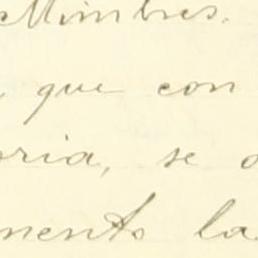 Mimbres.
que con
oria, se
mento la